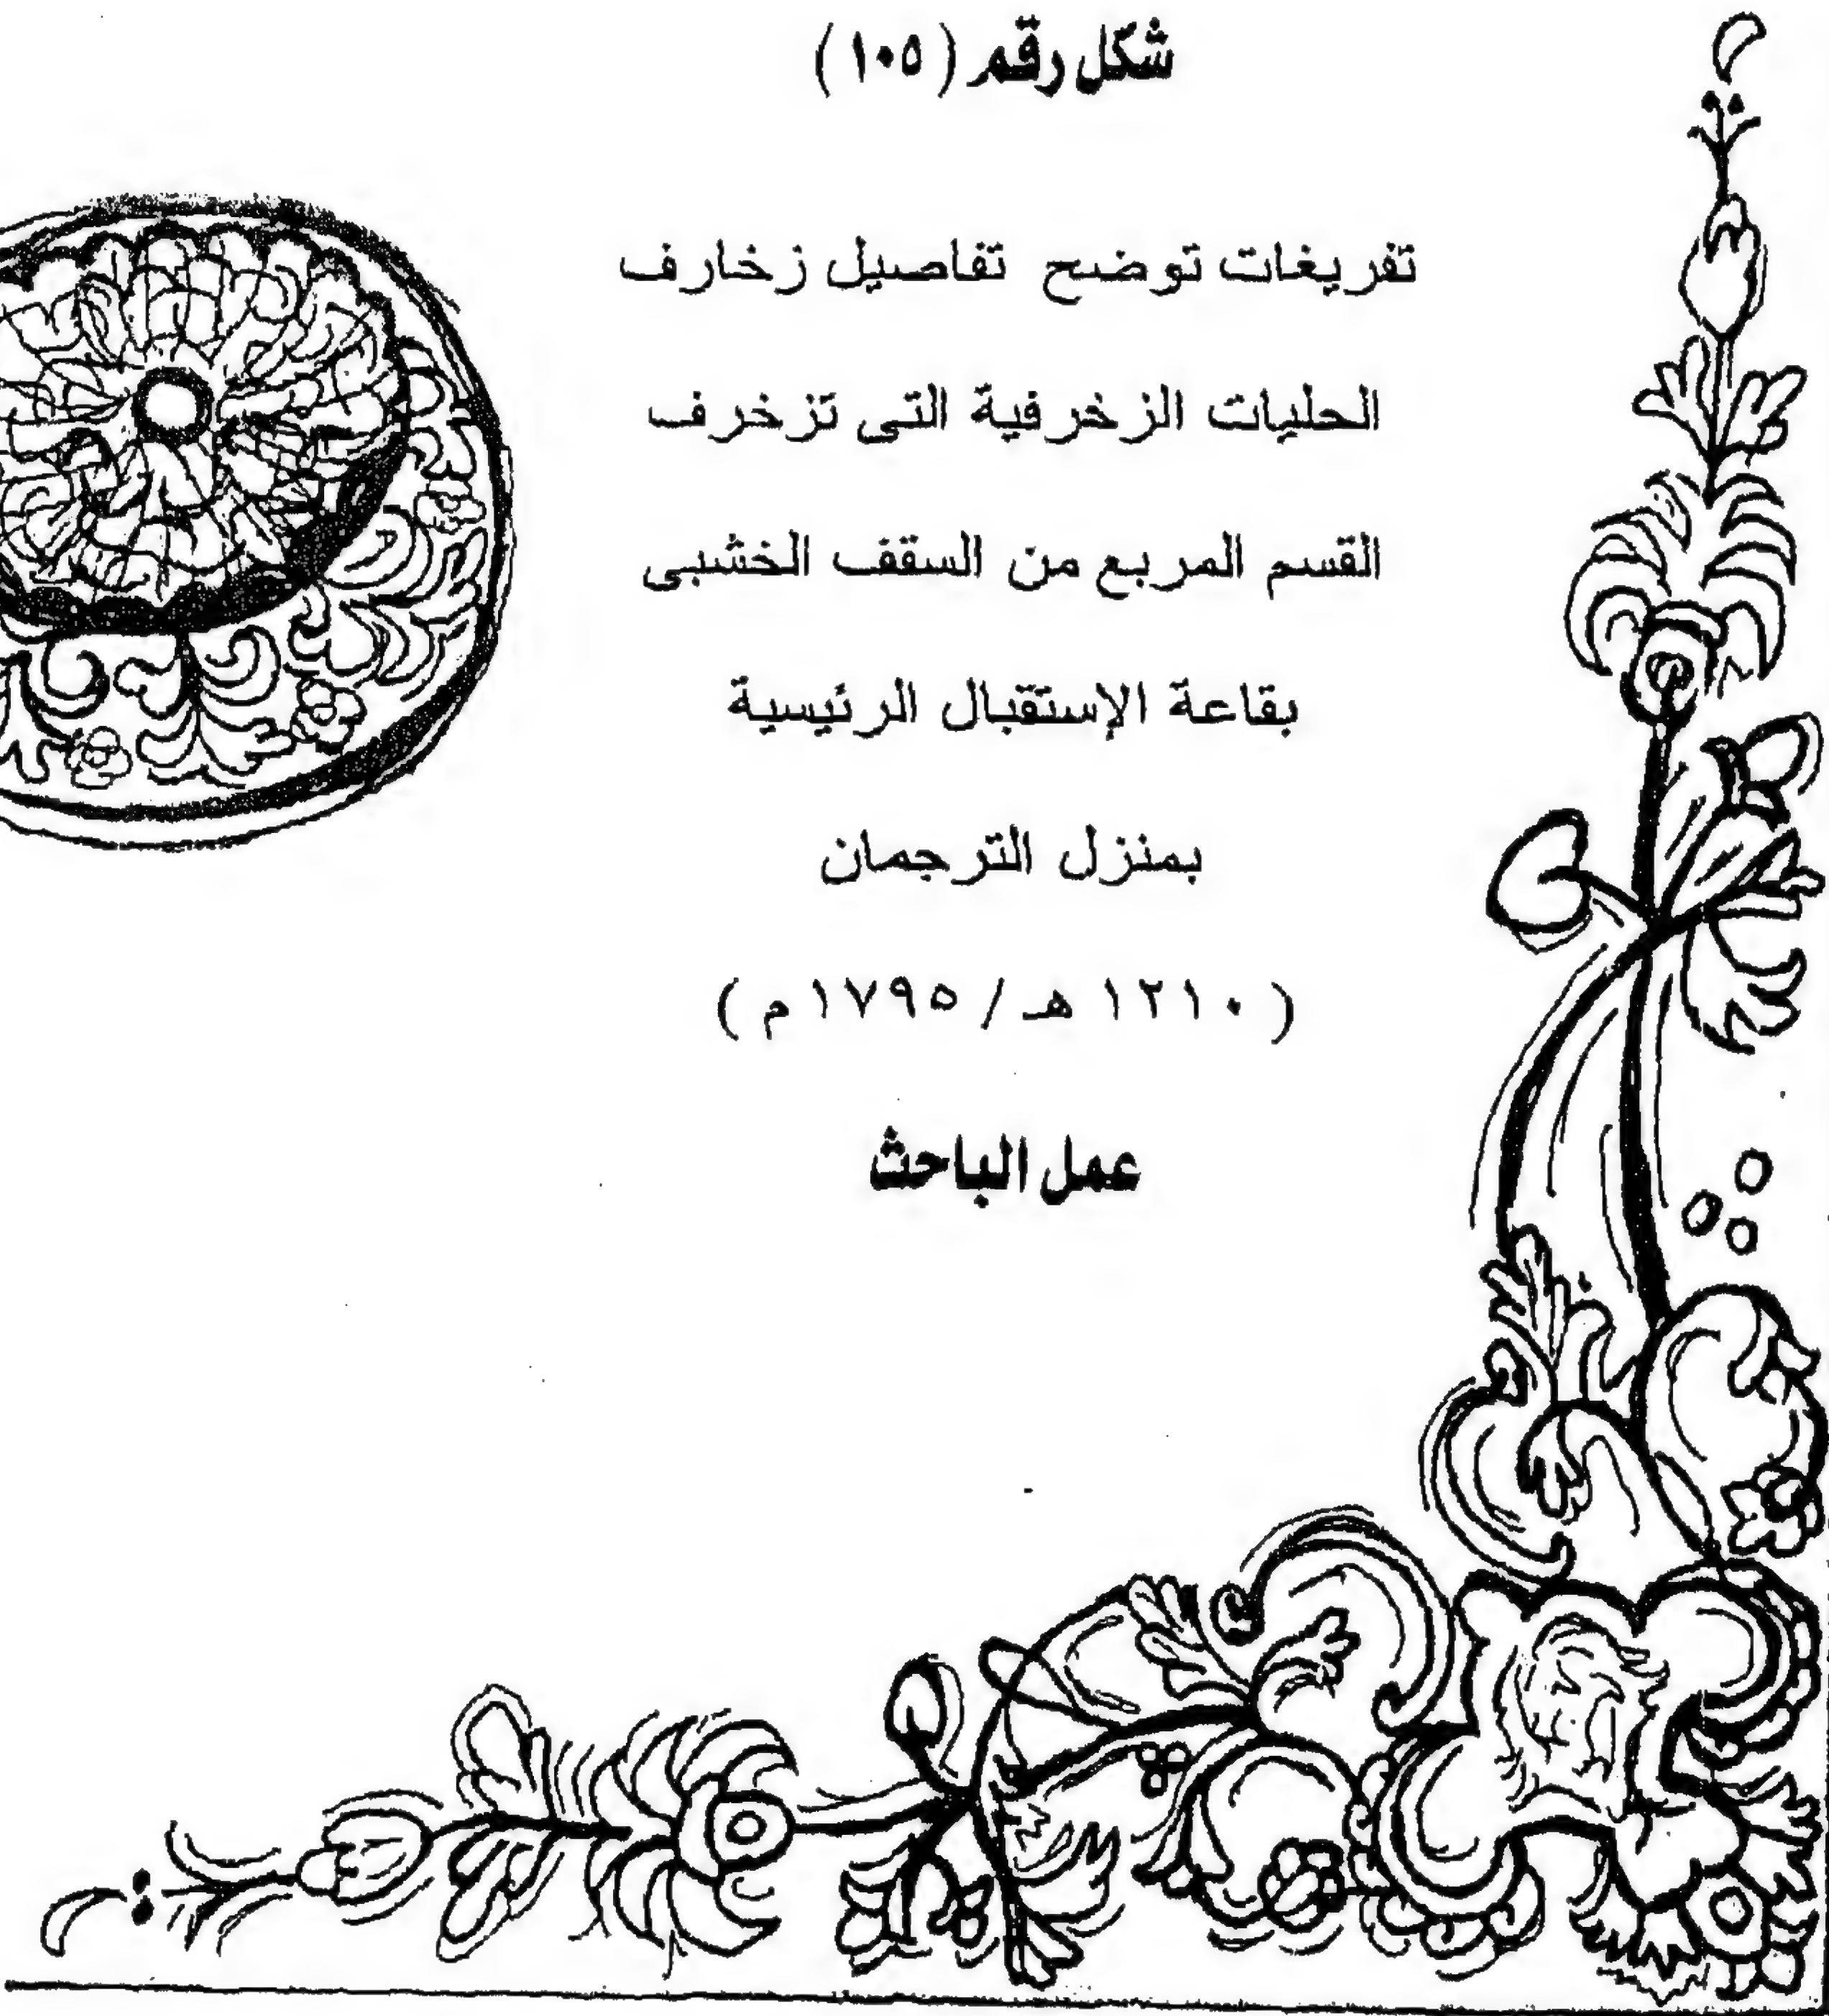 شكل رقم ( ١٠٥ )
تفريغات توضح تفاصيل زخارف
الحليات الزخرفية التى تزخرف
القسم المربع من السقف الخشبى
بقاعة الإستقبال الرئيسية
بمنزل الترجمان
( ١٢١٠ هـ / ١٧٩٥ م )
عمل الباحث